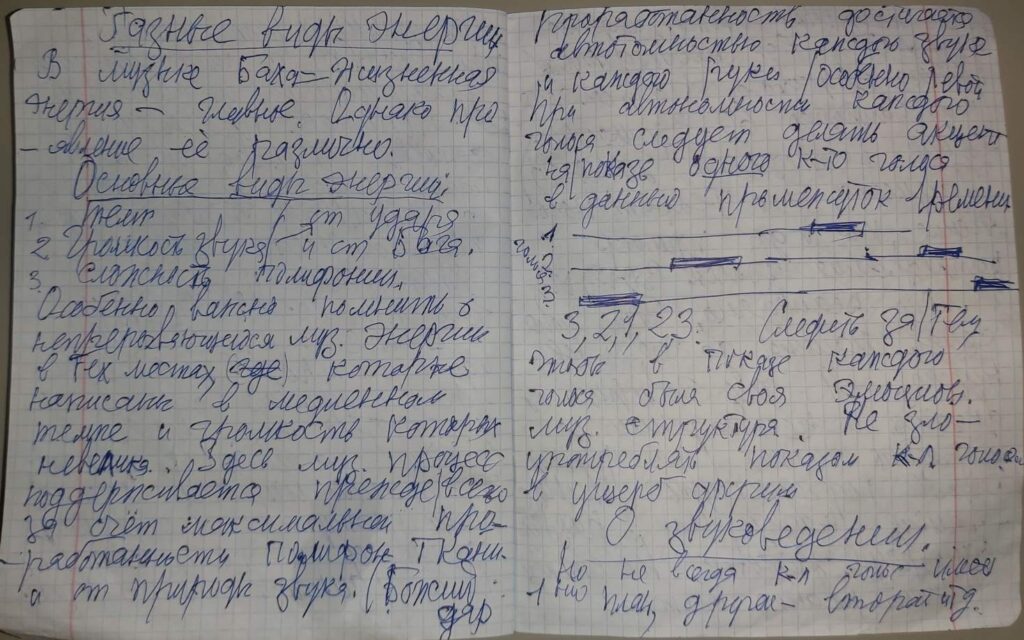 Разные виды энергии
В музыке Баха – жизненная
энергия – главное. Однако про
-явление её различно.
Основные виды энергии
1. темп
от удара
2. Громкость звука
и от Бога.
3. сложность полифонии.
Особенно важно помнить о
непрерывающейся муз. энергии
в тех местах, (где) которые
написаны в медленном
темпе и громкость которых
невелика. Здесь муз. процесс
поддерживается прежде всего
за счёт максимальной про-
-работанности полифон. ткани
и от природы звука. (Божий
дар
Проработанность достигается
автономностью каждого звука
и каждой руки (особенно левой
При автономности каждого
голоса следует делать акцент
на показе одного к-то голоса
в данный промежуток времени
1.
2.
3, 2, 1, 2 3. Следить за тем
чтоб в показе каждого
голоса была своя эмоцион.
муз. структура. Не зло-
употреблять показом к-л голоса
в ущерб другим
О звуковедении.
Но не всегда к-л голос имеет
1 ый план, другой – второй и тд.